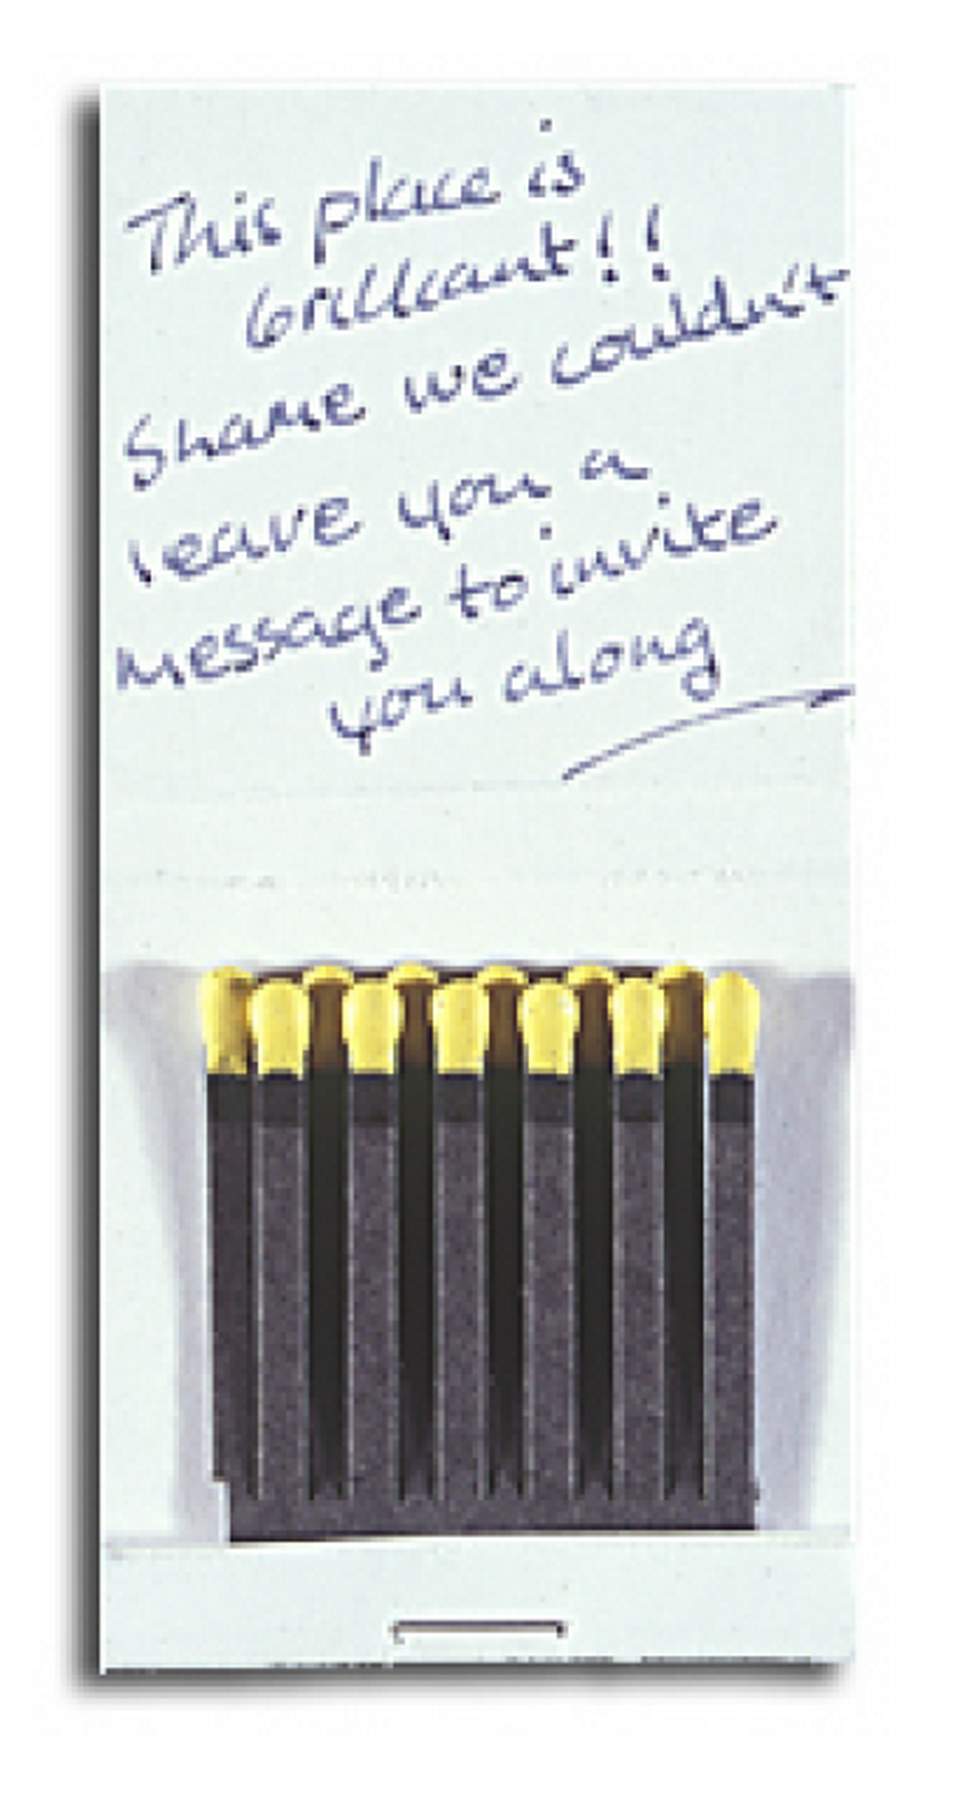 This place is
brilliant!!
Shame we couldn't
leave you a
message to invite
you along